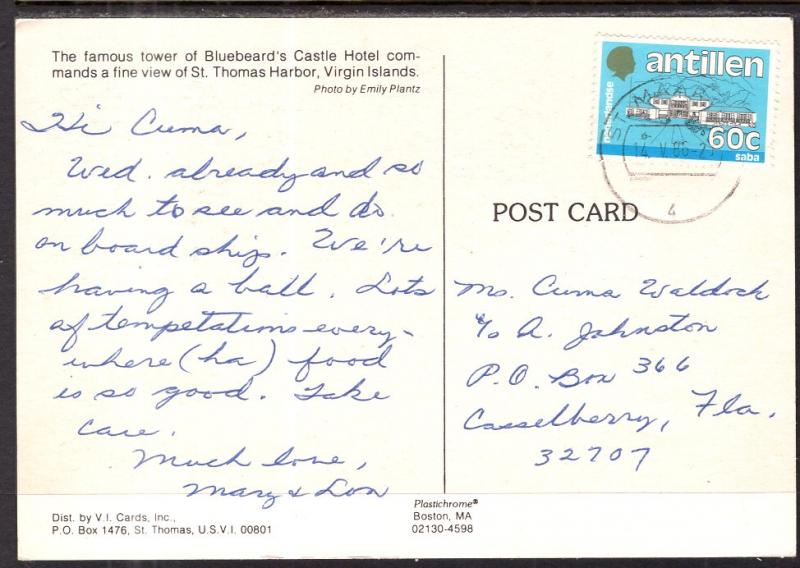 The famous tower of Bluebeard's Castle Hotel com-
mands a fine view of St. Thomas Harbor, Virgin Islands.
Photo by Emily Plantz
Hi Cuma,
Wed. already and so
much to see and do
on board ship. We're
having a ball. Lots
of tempetations every-
where (ha) food
is so good. Take
care.
Much love,
Mary & Lon
Dist. by V.I. Cards, Inc.,
P.O. Box 1476, St. Thomas, U.S.V.I. 00801
Plastichrome®
Boston, MA
02130-4598
nederlandse
antillen
60c
saba
14. V. 86-2
4
POST CARD
Ms. Cuma Waldock
c/o A. Johnston
P.O. Box 366
Casselberry, Fla.
32707